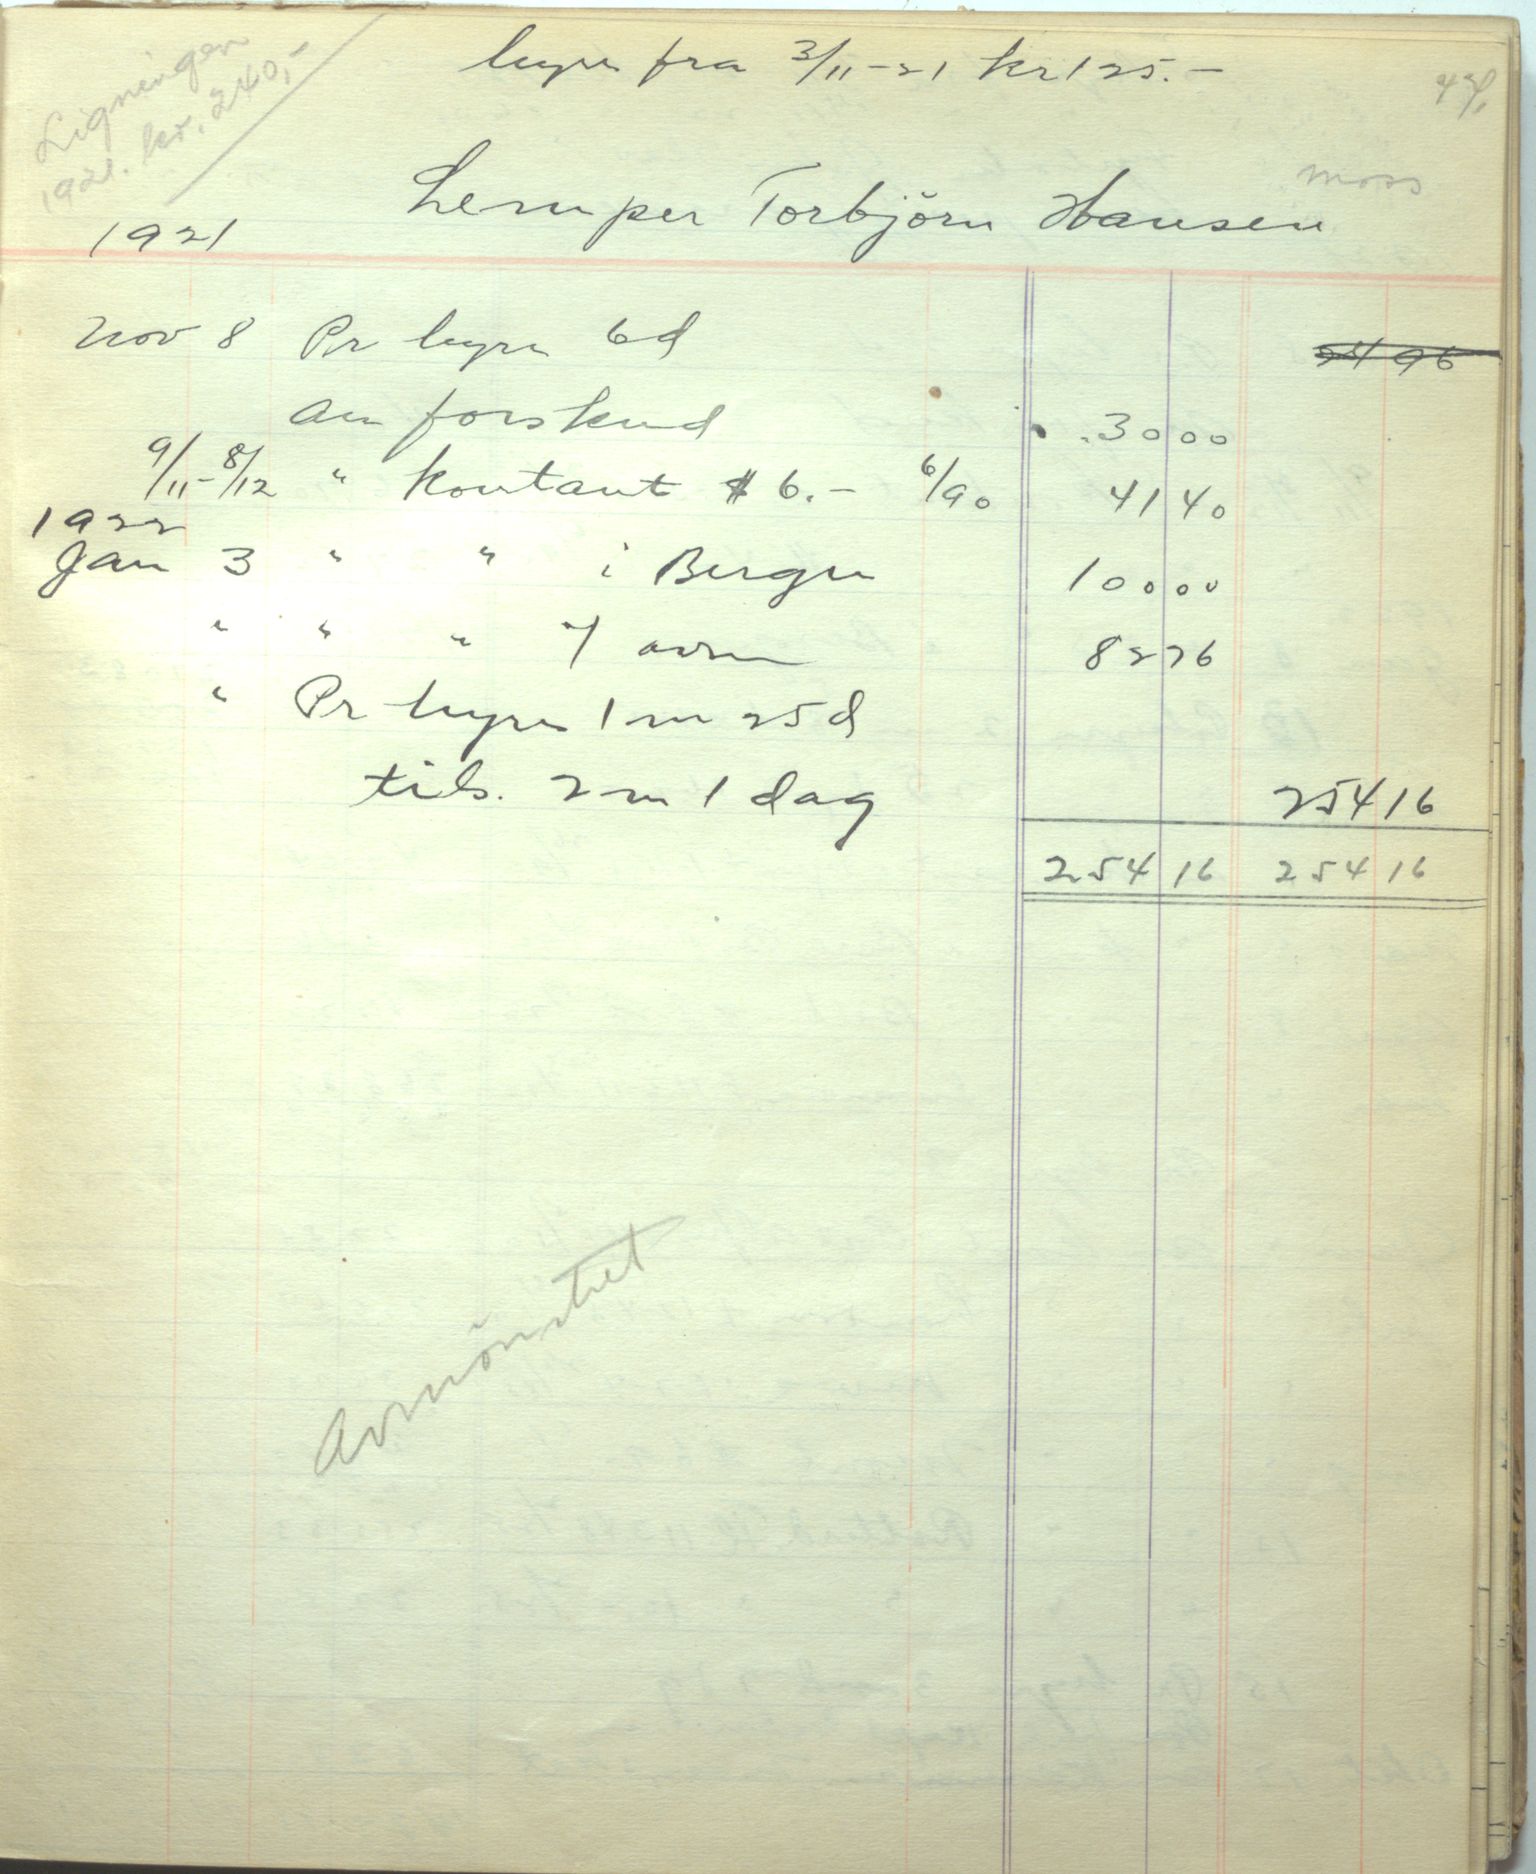 Ligningen
1921. kr. 240,-
hyre fra 3/11-21 kr 125.-
47.
moss
1921 Lemper Torbjörn Hansen
Nov 8 Pr hyre 6d 24 96
An forskud 30 00
9/11-8/12 " kontant $ 6.- 6/90 41 40
1922
Jan 3 " " i Bergen 100 00
" " " 7/ avm 82 76
" Pr hyre 1 m 25 d
tils. 2 m 1 dag 254 16
254 16 254 16
Avmönstret